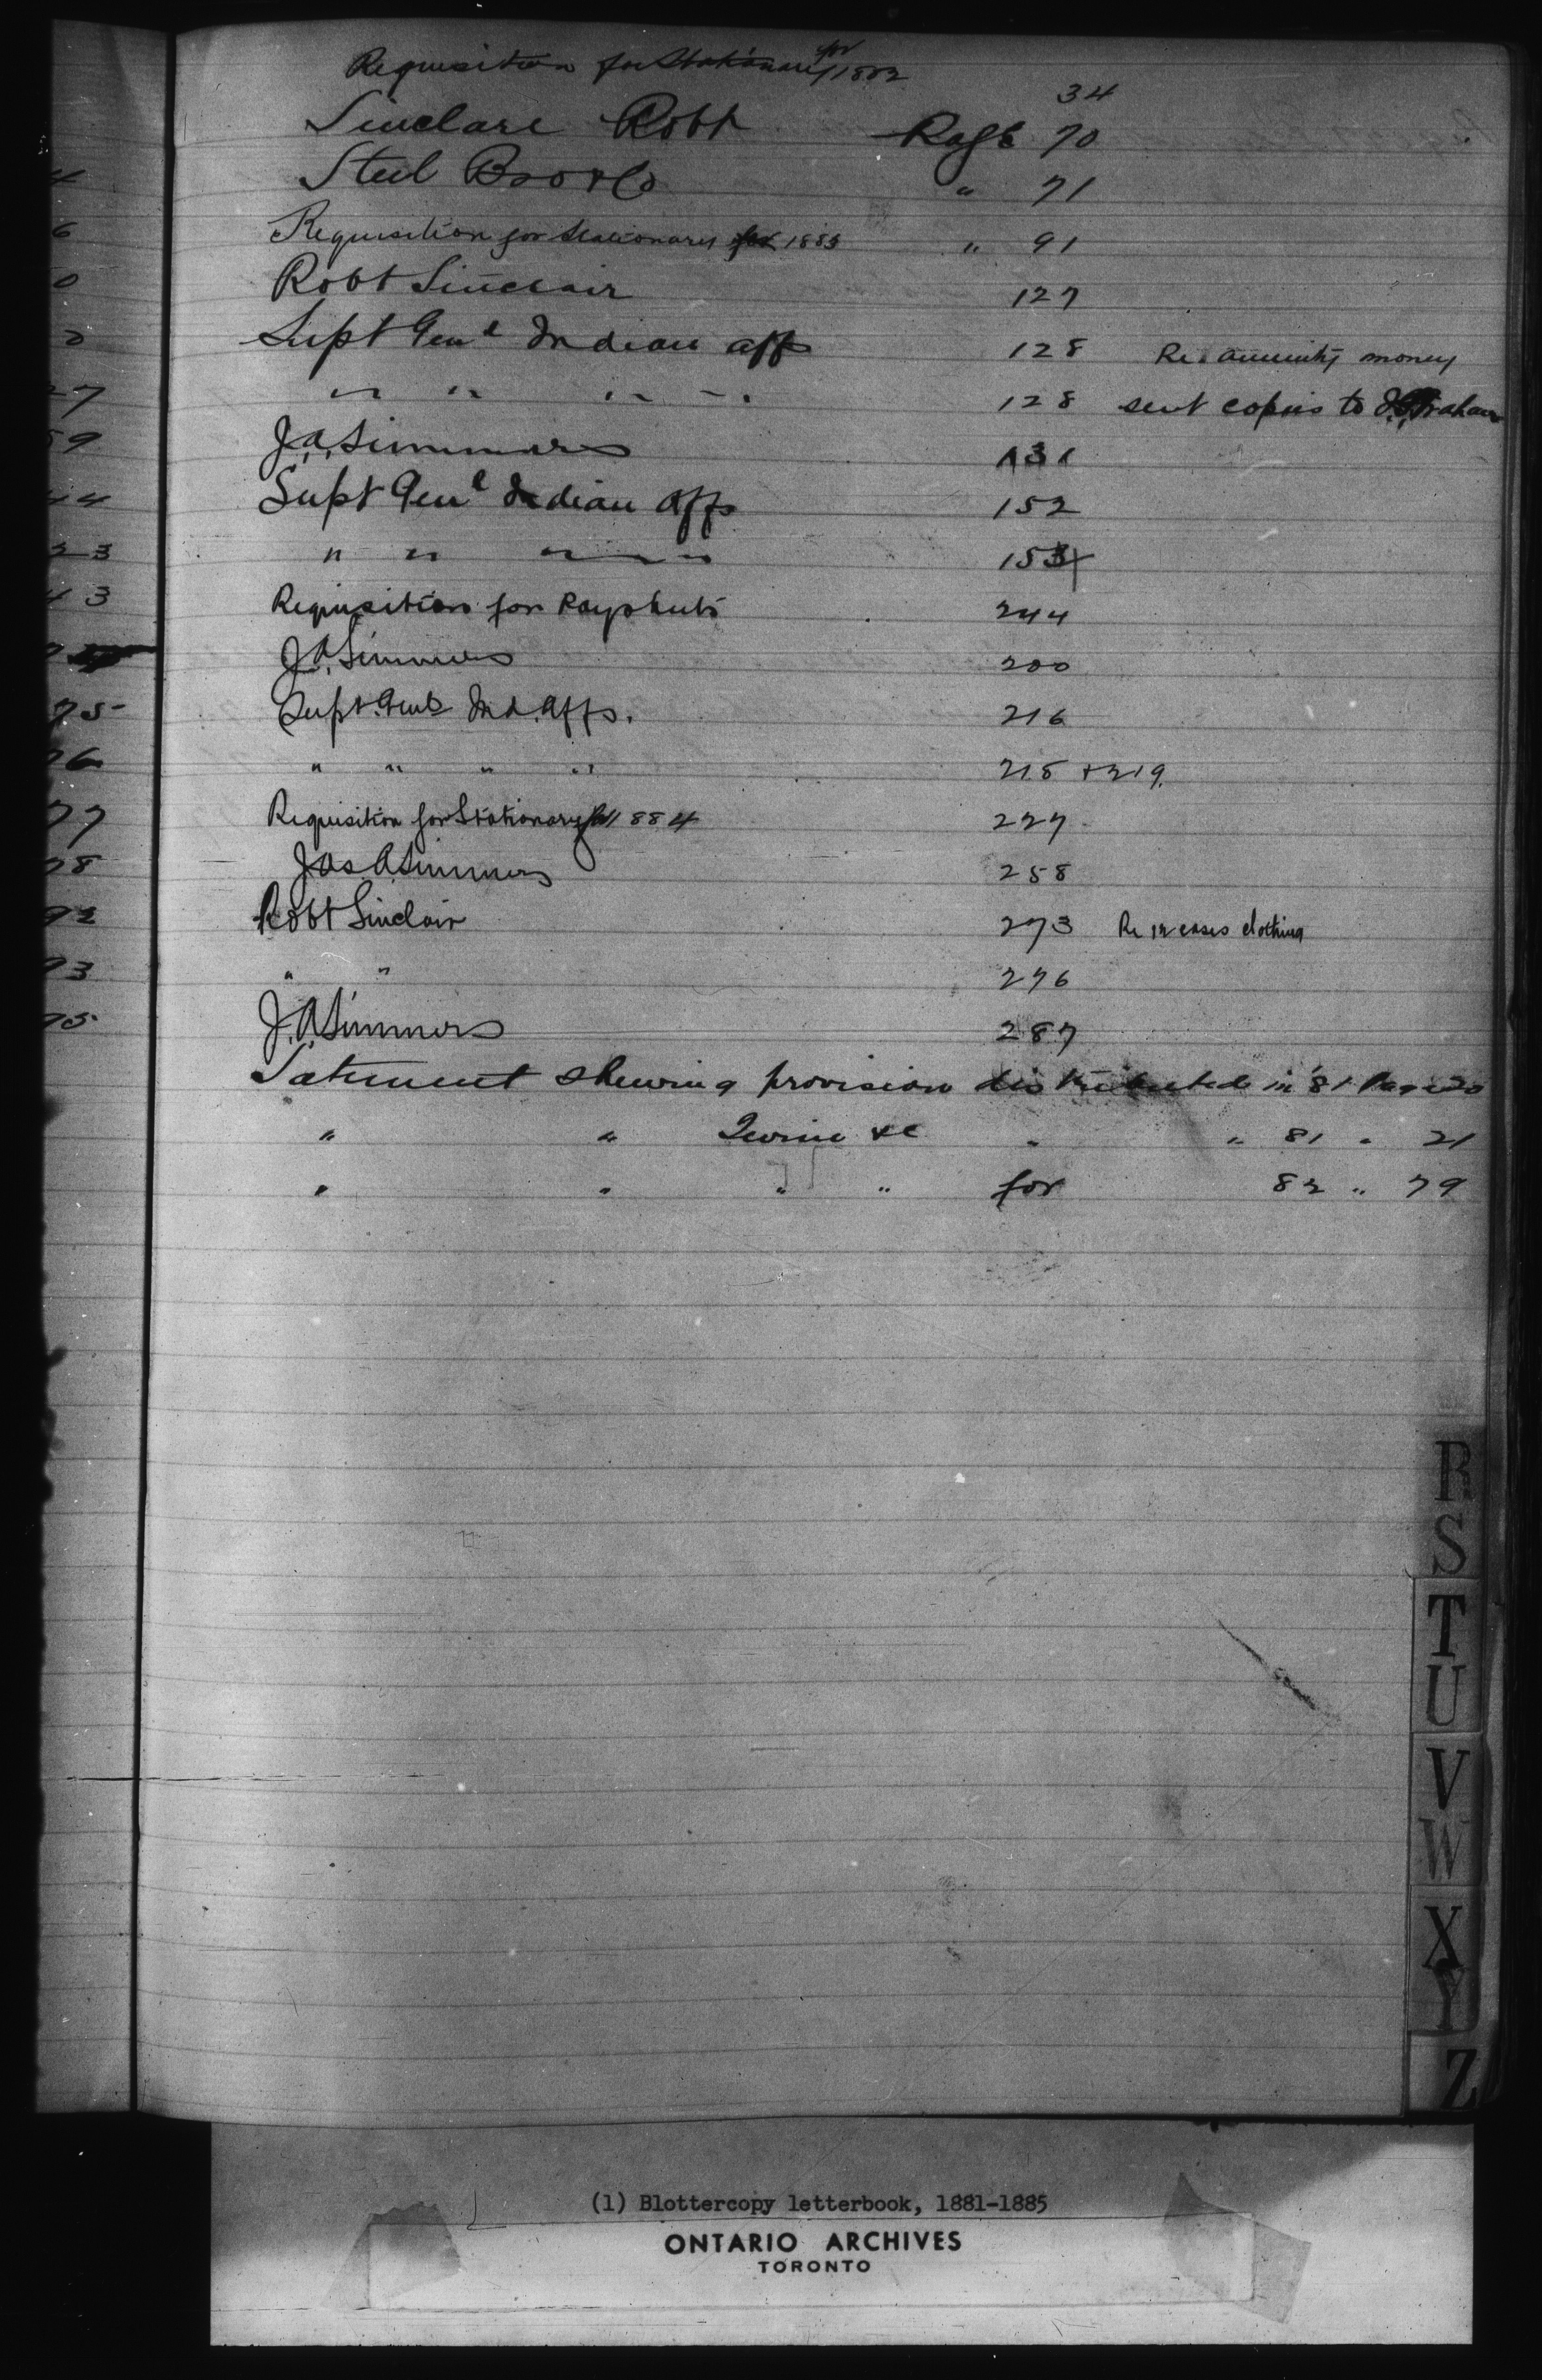 Requisition for Stationary for 1882 34
Sinclare Robt Page 70
Steel Bro & Co " 71
Requisition for Stationary for 1883 " 91
Robt Sinclair 127
Supt Genl Indian aff 128 Re. annuity money
" " " " 128 sent copies to J. Graham
J.A. Simmers 131
Supt Genl Indian Affs 152
" " " " 153
Requisition for Paysheets 244
J.A. Simmers 200
Supt. Genl Ind. Affs. 216
" " " " 218 & 219.
Requisition for Stationary for 1884 227
Jas A. Simmers 258
Robt Sinclair 273 Re 12 cases clothing
" " 276
J.A. Simmers 287
Satement shewing provision distributed in '81 Page 20
" " Twine &c " " 81 " 21
" " " " for 82 " 79
4
6
0
2
27
59
44
23
43
75
76
77
78
92
93
95
R
S
T
U
V
W
X
Y
Z
(1) Blottercopy letterbook, 1881-1885
ONTARIO ARCHIVES
TORONTO